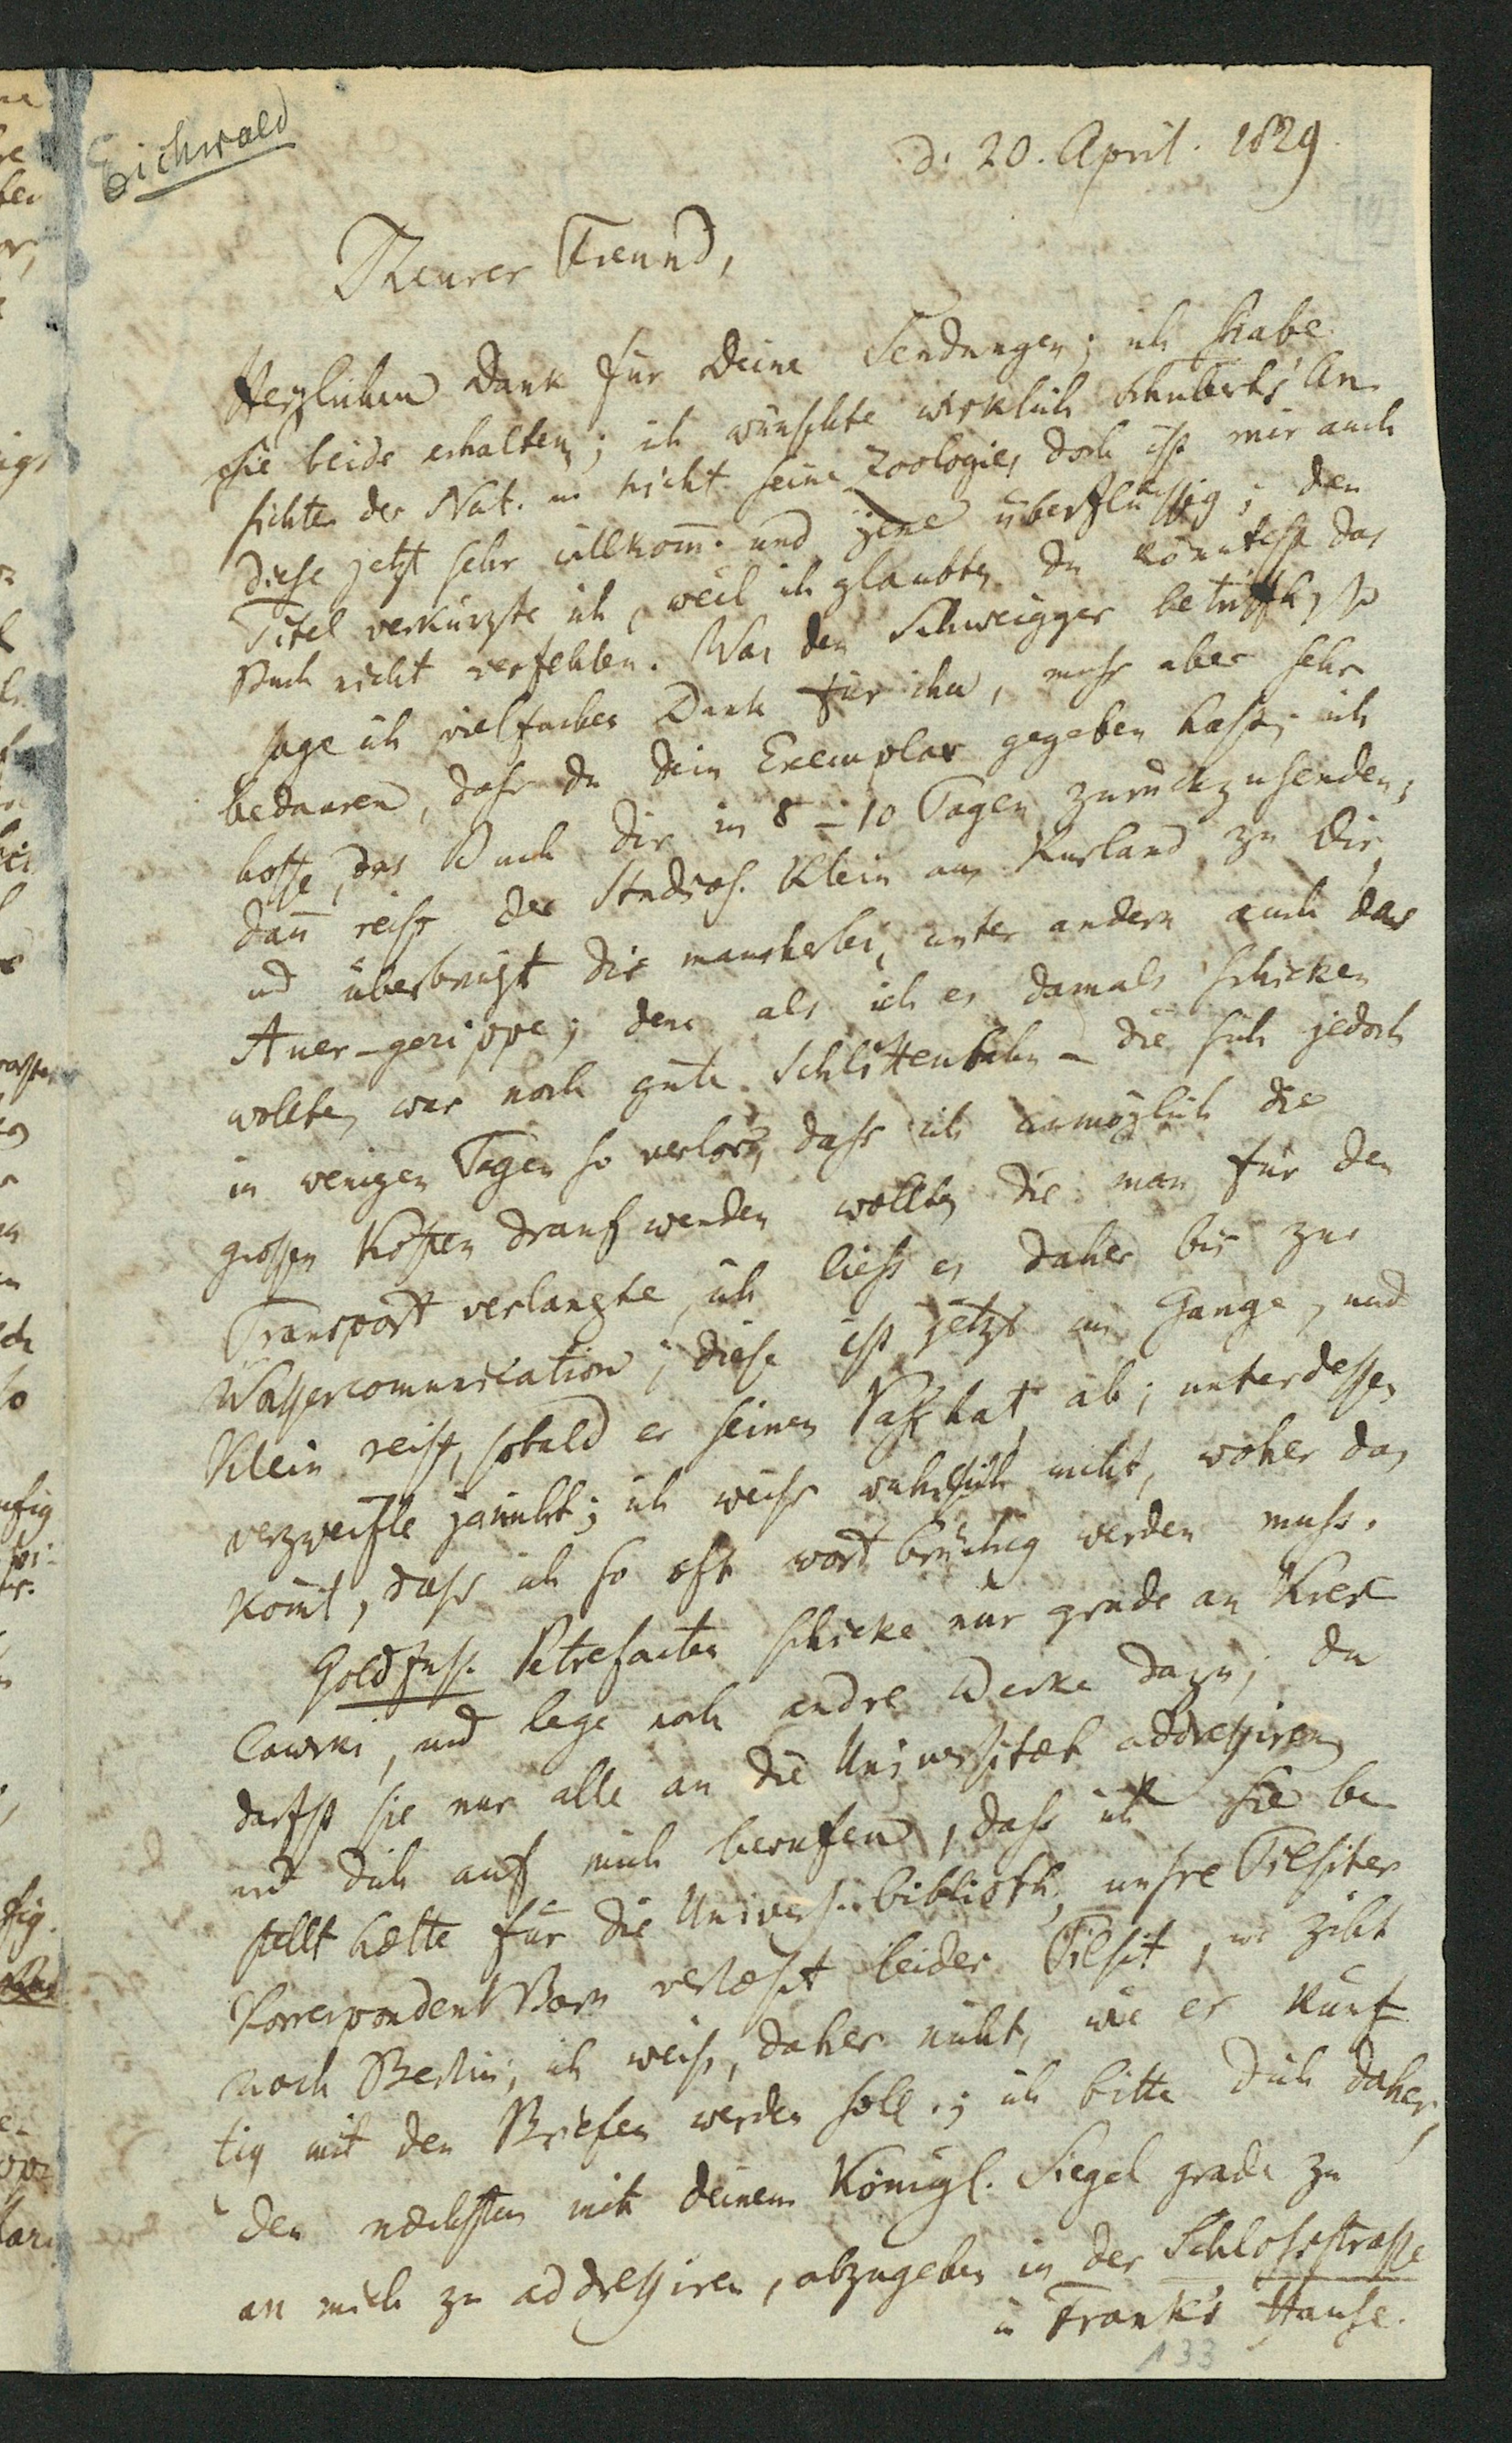 Eichwald
d. 20. April. 1829.
Theurer Freund,
Herzlichen Dank für Deine Sendungen; ich habe
sie beide erhalten; ich wünschte wirklich Schuberts' An-
sichten der Nat. u nicht seine Zoologie, doch ist mir auch
diese jetzt sehr willkom̄. und jene überflüssig; den
Titel verkürzte ich, weil ich glaubte, du könntest das
Buch nicht verfehlen. Was den Schweigger betrifft, so
sage ich vielfachen Dank für ihn, muss aber sehr
bedauren, dass du dein Exemplar gegeben hast; ich
hoffe, das Buch dir in 8–10 Tagen zurückzusenden;
dan̄ reist der Studios. Klein aus Kurland zu dir,
und überbringt dir mancherlei, unter andern auch das
Auer-gerippe; denn als ich es damals schicken
wollte, war noch gute Schlittenbahn – die sich jedoch
in wenigen Tagen so verlor, dass ich unmöglich die
grossen Kosten drauf wenden wollte, die man für den
Transport verlangte, ich liess es daher bis zur
Wassercommunication; diese ist jetzt im Gange, und
Klein reist, sobald er seinen Pass hat, ab; unterdessen
verzweifle ja nicht; ich weiss wahrlich nicht, woher das
kom̄t, dass ich so oft wortbrüchig werden muss.
Goldfuss. Petrefacten schicke nur grade an
und lege noch andre Werke dazu; du
darfst sie nur alle an die Universitæt addressiren
und dich auf mich berufen, dass ich sie be-
stellt hætte für die Univers.-biblioth; unsre Tilsiter
Korrespondent verlæsst leider Tilsit, u zieht
nach Berlin; ich weiss, daher nicht, wie es künf-
tig mit den Briefen werden soll; ich bitte dich daher,
den næchsten mit deinem Königl. Siegel grade zu
an mich zu addressiren, abzugeben in der Schlossstrasse
in Frank's Hause.
133